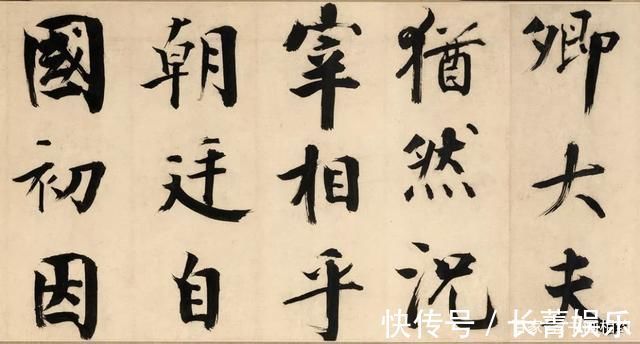 卿大夫
猶然況
宰相乎
朝廷自
國初因
快传号／长菁娱乐